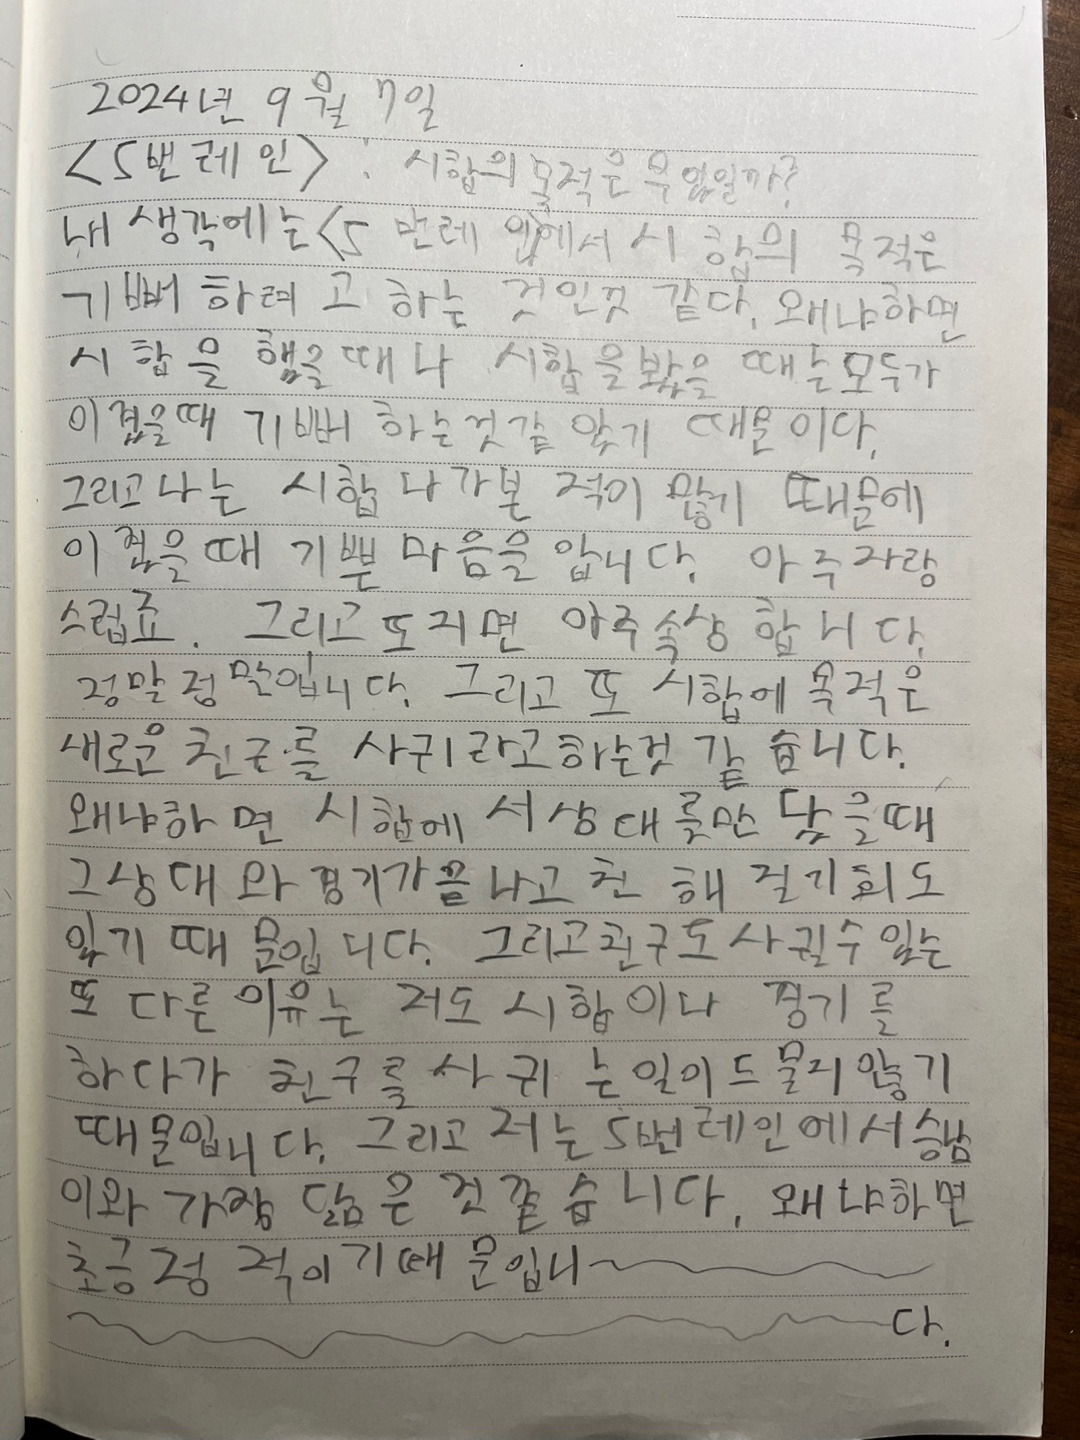 2024년 9월 7일
<5번레인> : 시합의 목적은 무엇일까?
내 생각에는 <5 번레 인>에서 시 합의 목적은
기뻐 하려 고 하는 것인것 같다. 왜냐하면
시 합을 했을 때나 시합을봤을 때는모두가
이겼을때 기뻐 하는것같 앟기 때문이다.
그리고 나는 시합 나가본 적이 많기 때문에
이 겼을 때 기쁜 마음을 압니다. 아주자랑
스럽죠. 그리고 또 지면 아주 속상 합니다.
정말 정말입니다. 그리고 또 시합에 목적은
새로운 친구를 사귀라고하는것 같 습니다.
왜냐하 면 시합에 서상대를만 났을때
그상대 와 경기가끝나고 친 해 질기회도
있기 때 문입니다. 그리고친구도 사귈수 있는
또 다른 이유는 저도 시합이나 경기를
하다가 친구를 사귀 는일이드물지않기
때문입니다. 그리고 저는 5번레인에서 승남
이와 가장 닮은 것같습니다. 왜냐하면
초긍정 적이기때 문입니
다.